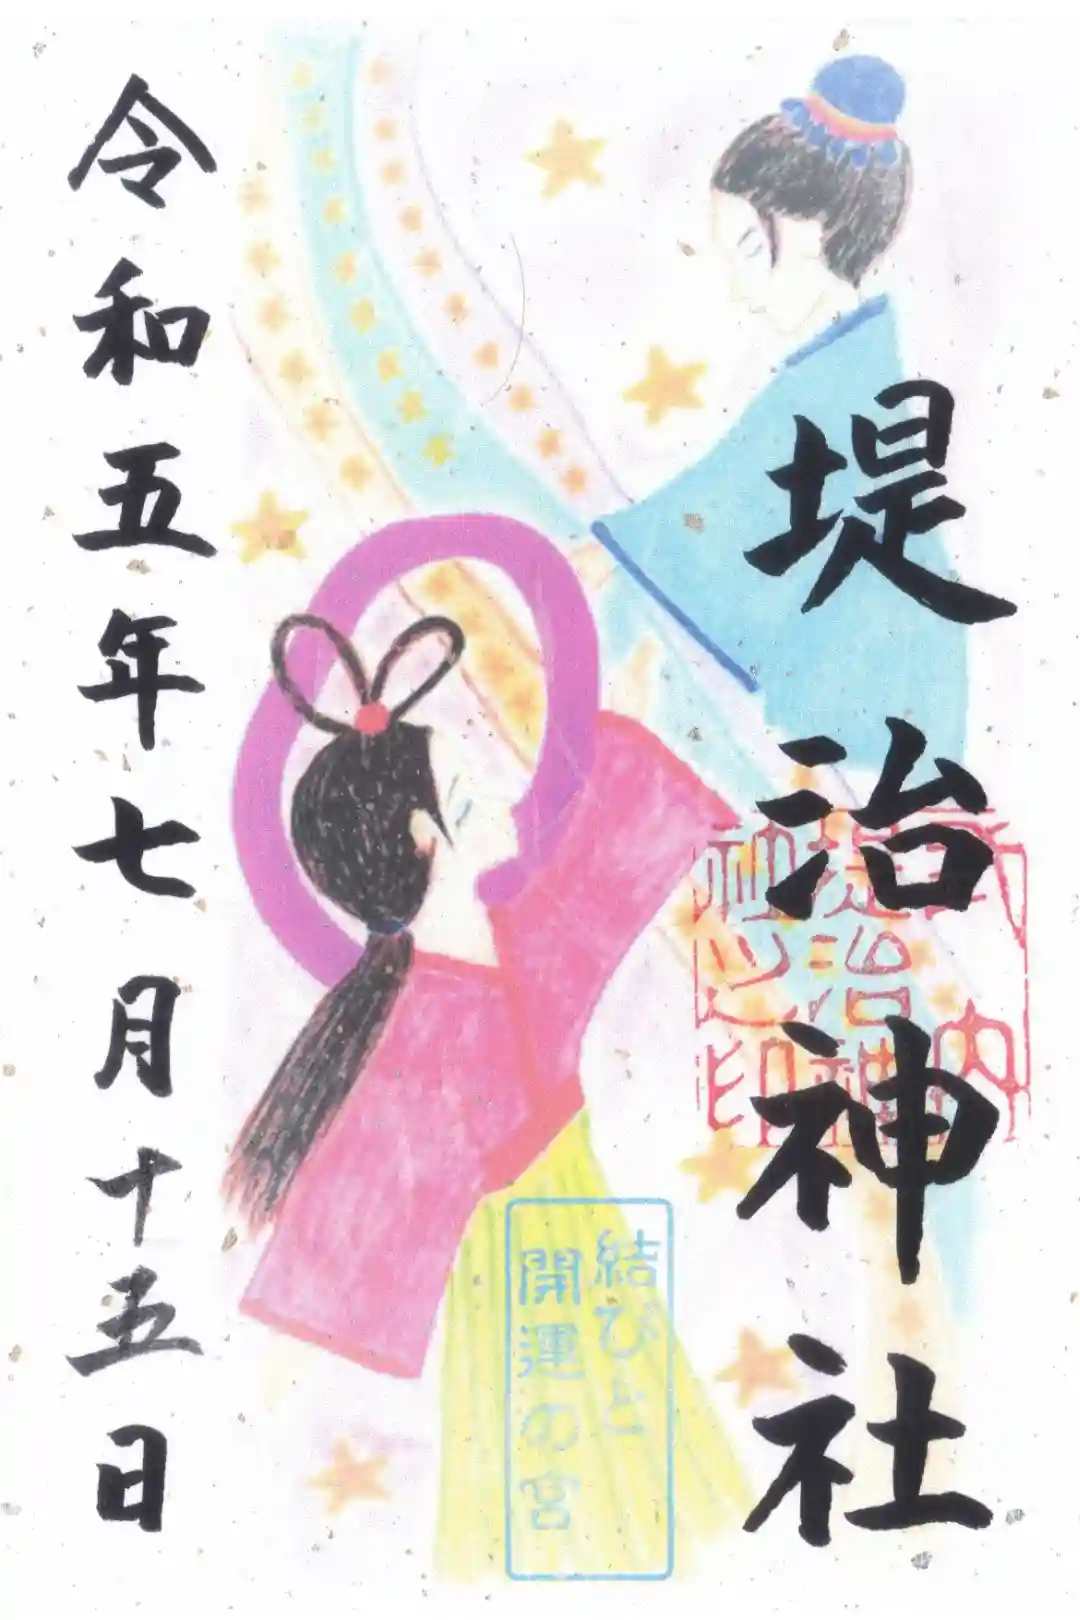 堤治神社
武内
堤治神
社之印
結びと
開運の宮
令和五年七月十五日